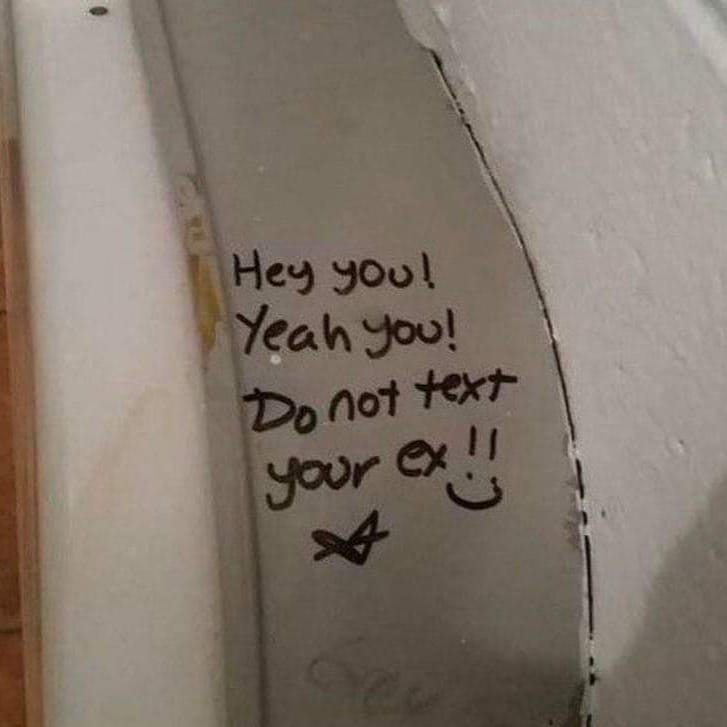 Hey you!
Yeah you!
Do not text
your ex!!